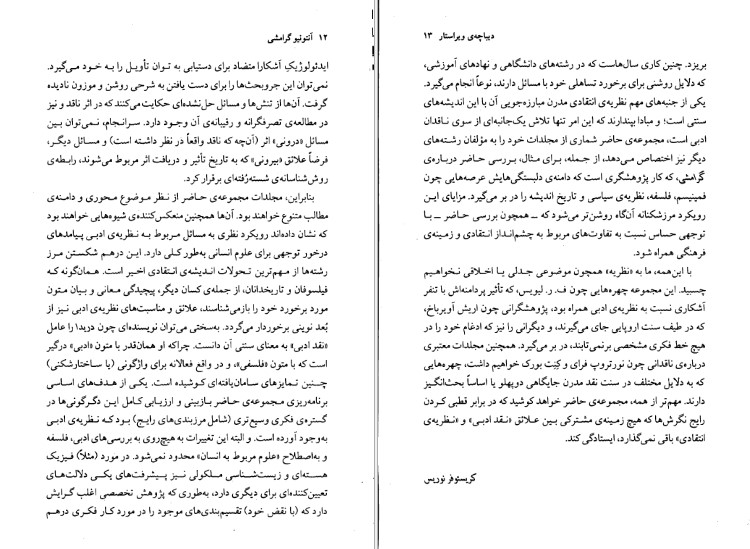 ۱۲ آنتونیو گرامشی
ایدئولوژیکِ آشکارا متضاد برای دستیابی به توان تأویل را به خود می‌گیرد.
نمی‌توان این جروبحث‌ها را برای دست یافتن به شرحی روشن و موزون نادیده
گرفت. آن‌ها از تنش‌ها و مسائل حل‌نشده‌ای حکایت می‌کنند که در اثر ناقد و نیز
در مطالعه‌ی تصرفگرانه و رقیبانه‌ی آن وجود دارد. سرانجام، نمی‌توان بین
مسائل «درونی» اثر (آن‌چه که ناقد واقعاً در نظر داشته است) و مسائل دیگر،
فرضاً علائق «بیرونی» که به تاریخ تأثیر و دریافت اثر مربوط می‌شوند، رابطه‌ی
روش‌شناسانه‌ی شسته‌رُفته‌ای برقرار کرد.
بنابراین، مجلدات مجموعه‌ی حاضر از نظر موضوع محوری و دامنه‌ی
مطالب متنوع خواهند بود. آن‌ها همچنین منعکس‌کننده‌ی شیوه‌هایی خواهند بود
که نشان داده‌اند رویکرد نظری به مسائل مربوط به نظریه‌ی ادبی پیامدهای
درخور توجهی برای علوم انسانی به‌طور کلی دارد. این درهم شکستن مرز
رشته‌ها از مهم‌ترین تحولات اندیشه‌ی انتقادی اخیر است. همان‌گونه که
فیلسوفان و تاریخدانان، از جمله‌ی کسان دیگر، پیچیدگی معانی و بیان متون
مورد برخورد خود را بازمی‌شناسند، علائق و مناسبت‌های نظریه‌ی ادبی نیز از
بُعد نوینی برخوردار می‌گردد. به‌سختی می‌توان نویسنده‌ای چون دریدا را عامل
«نقد ادبی» به معنای سنتی آن دانست. چراکه او همان‌قدر با متون «ادبی» درگیر
است که با متون «فلسفی»، و در واقع فعالانه برای واژگونی (یا ساختارشکنی)
چنین تمایزهای سامان‌یافته‌ای کوشیده است. یکی از هدف‌های اساسی
برنامه‌ریزی مجموعه‌ی حاضر بازبینی و ارزیابی کامل این دگرگونی‌ها در
گستره‌ی فکری وسیع‌تری (شامل مرزبندی‌های رایج) بود که نظریه‌ی ادبی
به‌وجود آورده است. و البته این تغییرات به هیچ‌روی به بررسی‌های ادبی، فلسفه
و به‌اصطلاح «علوم مربوط به انسان» محدود نمی‌شود. در مورد (مثلاً) فیزیک
هسته‌ای و زیست‌شناسی ملکولی نیز پیشرفت‌های یکی دلالت‌های
تعیین‌کننده‌ای برای دیگری دارد، به‌طوری که پژوهش تخصصی اغلب گرایش
دارد که (با نقض خود) تقسیم‌بندی‌های موجود را در مورد کار فکری درهم
دیباچه‌ی ویراستار ۱۳
بریزد. چنین کاری سال‌هاست که در رشته‌های دانشگاهی و نهادهای آموزشی،
که دلایل روشنی برای برخورد تساهلی خود با مسائل دارند، نوعاً انجام می‌گیرد.
یکی از جنبه‌های مهم نظریه‌ی انتقادی مدرن مبارزه‌جویی آن با این اندیشه‌های
سنتی است؛ و مبادا بپندارند که این امر تنها تلاش یک‌جانبه‌ای از سوی ناقدان
ادبی است، مجموعه‌ی حاضر شماری از مجلدات خود را به مؤلفان رشته‌های
دیگر نیز اختصاص می‌دهد، از جمله، برای مثال، بررسی حاضر درباره‌ی
گرامشی، که کار پژوهشگری است که دامنه‌ی دلبستگی‌هایش عرصه‌هایی چون
فمینیسم، فلسفه، نظریه‌ی سیاسی و تاریخ اندیشه را در بر می‌گیرد. مزایای این
رویکرد مرزشکنانه آن‌گاه روشن‌تر می‌شود که ــ همچون بررسی حاضر ــ با
توجهی حساس نسبت به تفاوت‌های مربوط به چشم‌انداز انتقادی و زمینه‌ی
فرهنگی همراه شود.
با این‌همه، ما به «نظریه» همچون موضوعی جدلی یا اخلاقی نخواهیم
چسبید. این مجموعه چهره‌هایی چون ف. ر. لیویس، که تأثیر پردامنه‌اش با تنفر
آشکاری نسبت به نظریه‌ی ادبی همراه بود، پژوهشگرانی چون اریش آویرباخ،
که در طیف سنت اروپایی جای می‌گیرند، و دیگرانی را نیز که ادغام خود را در
هیچ خط فکری مشخصی برنمی‌تابند، در بر می‌گیرد. همچنین مجلدات معتبری
درباره‌ی ناقدانی چون نورتروپ فرای و کِنِت بورک خواهیم داشت، چهره‌هایی
که به دلایل مختلف در سنت نقد مدرن جایگاهی دوپهلو یا اساساً بحث‌انگیز
دارند. مهم‌تر از همه، مجموعه‌ی حاضر خواهد کوشید که در برابر قطبی کردن
رایج نگرش‌ها که هیچ زمینه‌ی مشترکی بین علائق «نقد ادبی» و «نظریه‌ی
انتقادی» باقی نمی‌گذارد، ایستادگی کند.
کریستوفر نوریس